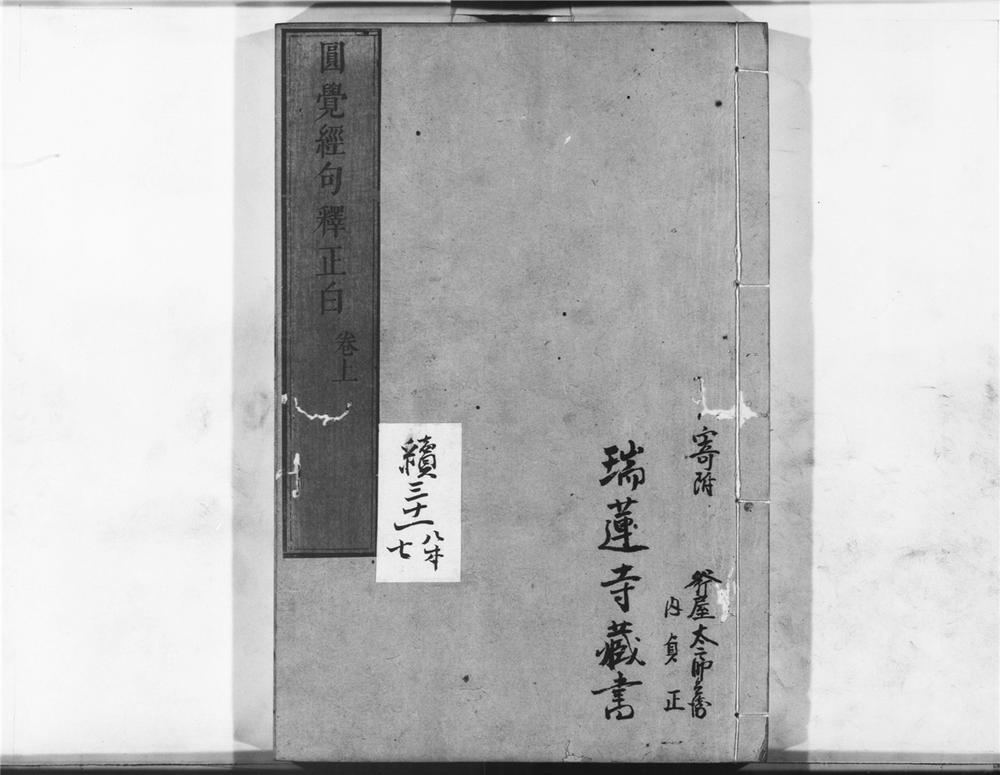 寄附
屋太郎兵衛
内貞正
瑞蓮寺藏書
圓覺經句釋正白 卷上
續三十一
七